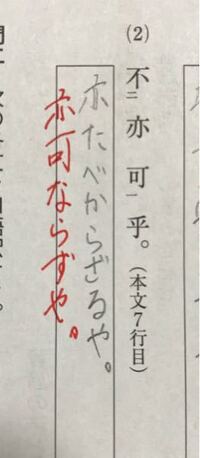 (2) 不二亦可一乎。(本文7行目)
亦たべからざるや。
亦可ならずや。